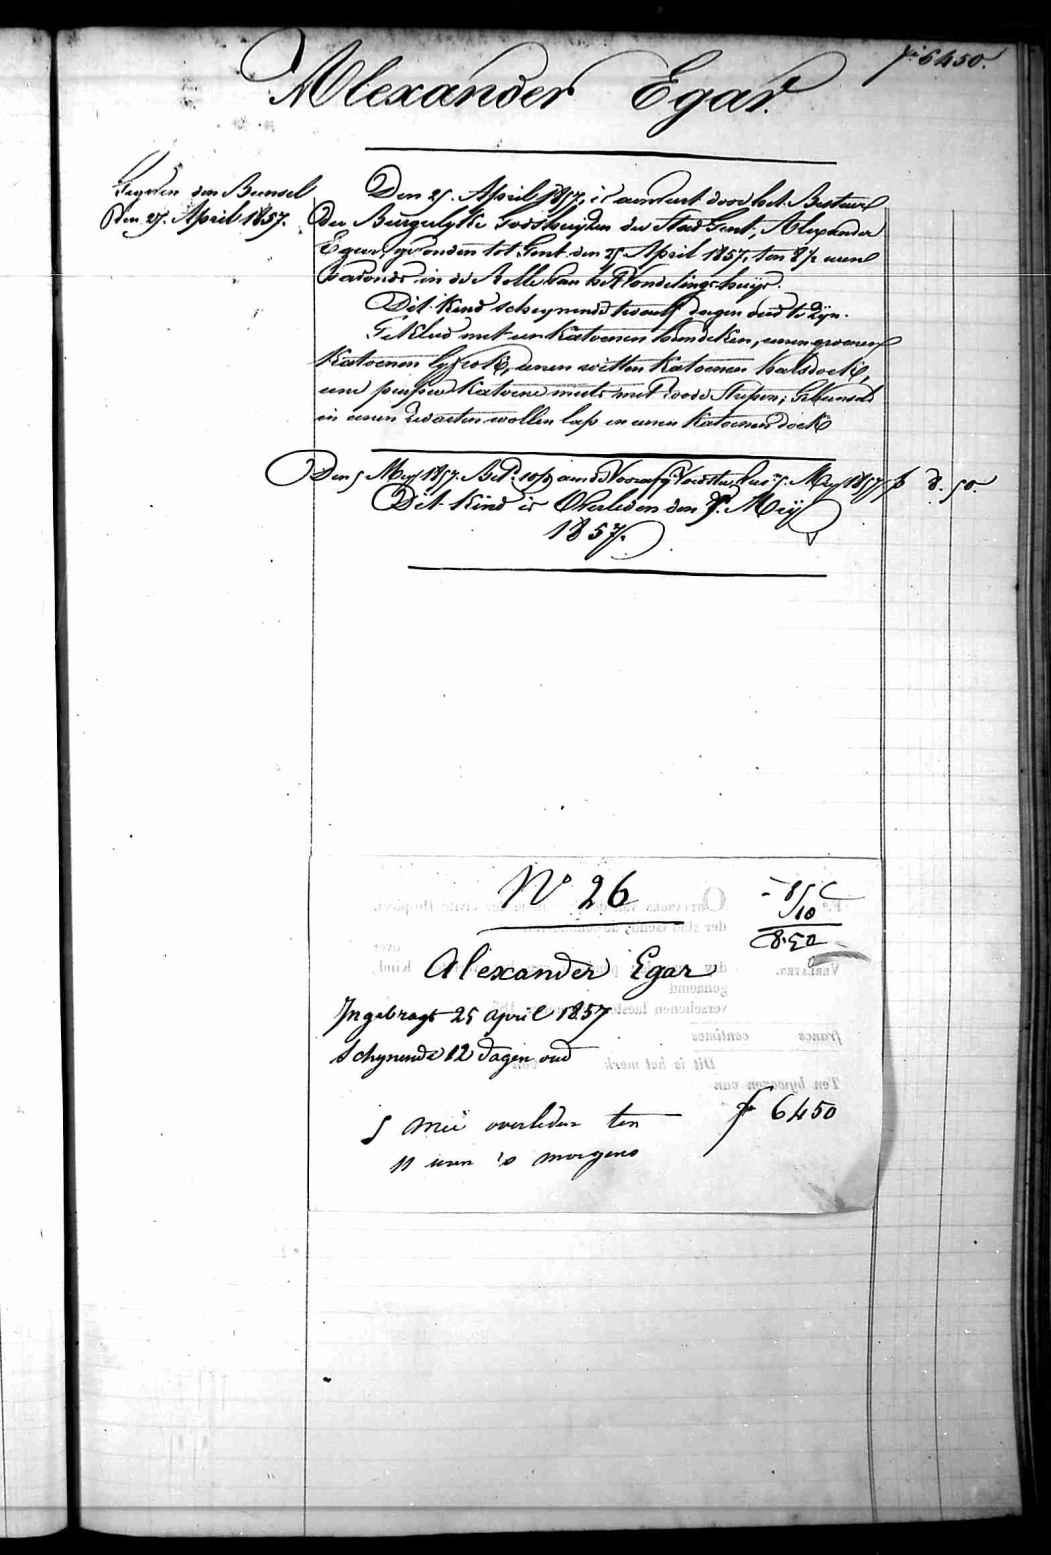 fo 6450.
Alexander Egar.
Gegeven den Bunsel
den 27. April 1857.
Den 25. April 1857, is aenveert door het Bestuer
der Burgerlyke Godshuyzen der Stad Gent, Alexander
Egar, gevonden tot Gent den 25 April 1857, ten 8½ uren
's avonds in de Rolle van het Vondelingshuys.
Dit kind schynende twaelf dagen oud te zyn.
Gekleed met een katoenen hemdeken, eenen groenen
katoenen lyfrok, eenen witten katoenen halsdoek,
eene purpere katoene muts met roode strepen; Gebunseld
in eenen zwarten wollen lap en eenen katoenen doek
Den 5 Mey 1857. Bet. 10 d aen de Voorafg. Voedster, tus 5. Mey 1857 f 8. 50.
Dit kind is Overleden den 5. Mey
1857.
No 26
85 C
10
8.50
Alexander Egar
Ingebragt 25 april 1857
Schynende 12 dagen oud
5 mei overleden ten
11 uren 's morgens
fo 6450